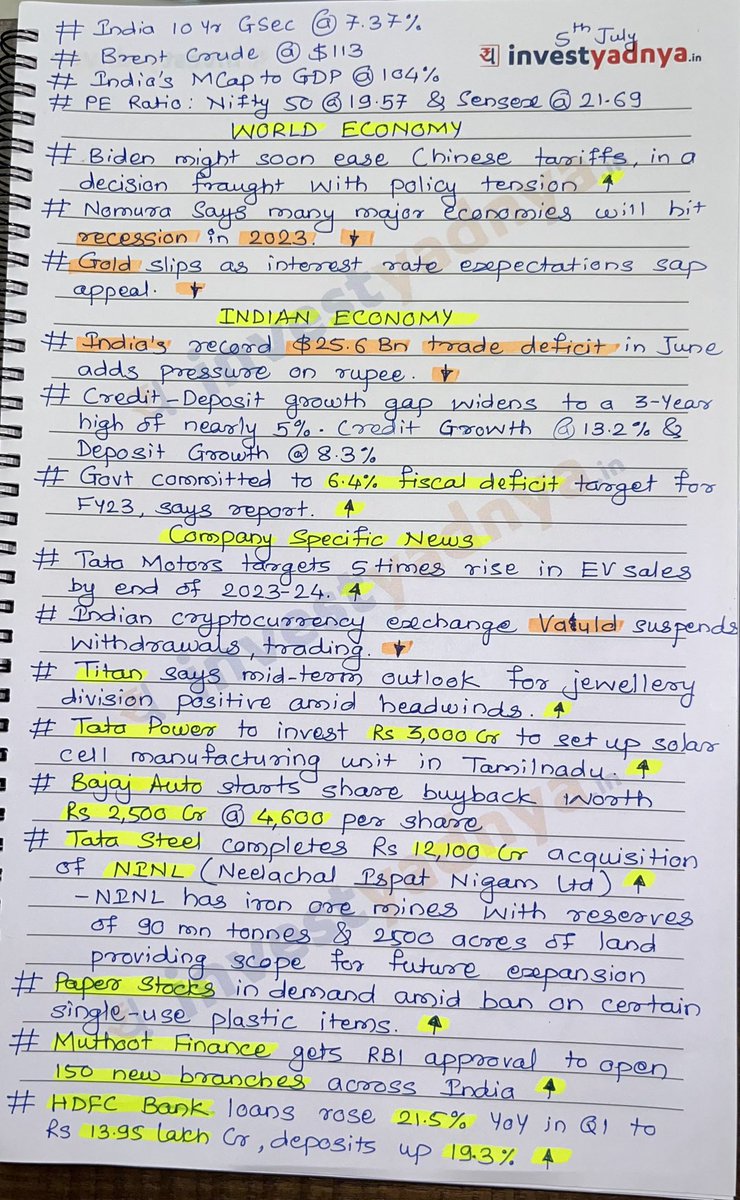 # India 10 Yr GSec @ 7.37%
5th July
# Brent Crude @ $113
य investyadnya.in
# India's MCap to GDP @ 104%
# PE Ratio: Nifty 50 @ 19.57 & Sensex @ 21.69
WORLD ECONOMY
# Biden might soon ease Chinese tariffs, in a
decision fraught with policy tension ↑
# Nomura says many major economies will hit
recession in 2023. ↓
# Gold slips as interest rate expectations sap
appeal. ↓
INDIAN ECONOMY
# India's record $25.6 Bn trade deficit in June
adds pressure on rupee. ↓
# Credit-Deposit growth gap widens to a 3-Year
high of nearly 5%. Credit Growth @ 13.2% &
Deposit Growth @ 8.3%
# Govt committed to 6.4% fiscal deficit target for
FY23, says report. ↑
Company Specific News
# Tata Motors targets 5 times rise in EV sales
by end of 2023-24. ↑
# Indian cryptocurrency exchange Vauld suspends
withdrawals, trading. ↓
# Titan says mid-term outlook for jewellery
division positive amid headwinds. ↑
# Tata Power to invest Rs 3,000 Cr to set up solar
cell manufacturing unit in Tamilnadu. ↑
# Bajaj Auto starts share buyback worth
Rs 2,500 Cr @ 4,600 per share
# Tata Steel completes Rs 12,100 Cr acquisition
of NINL (Neelachal Ispat Nigam Ltd) ↑
- NINL has iron ore mines with reserves
of 90 mn tonnes & 2500 acres of land
providing scope for future expansion
# Paper Stocks in demand amid ban on certain
single-use plastic items. ↑
# Muthoot Finance gets RBI approval to open
150 new branches across India ↑
# HDFC Bank loans rose 21.5% YoY in Q1 to
Rs 13.95 lakh Cr, deposits up 19.3% ↑